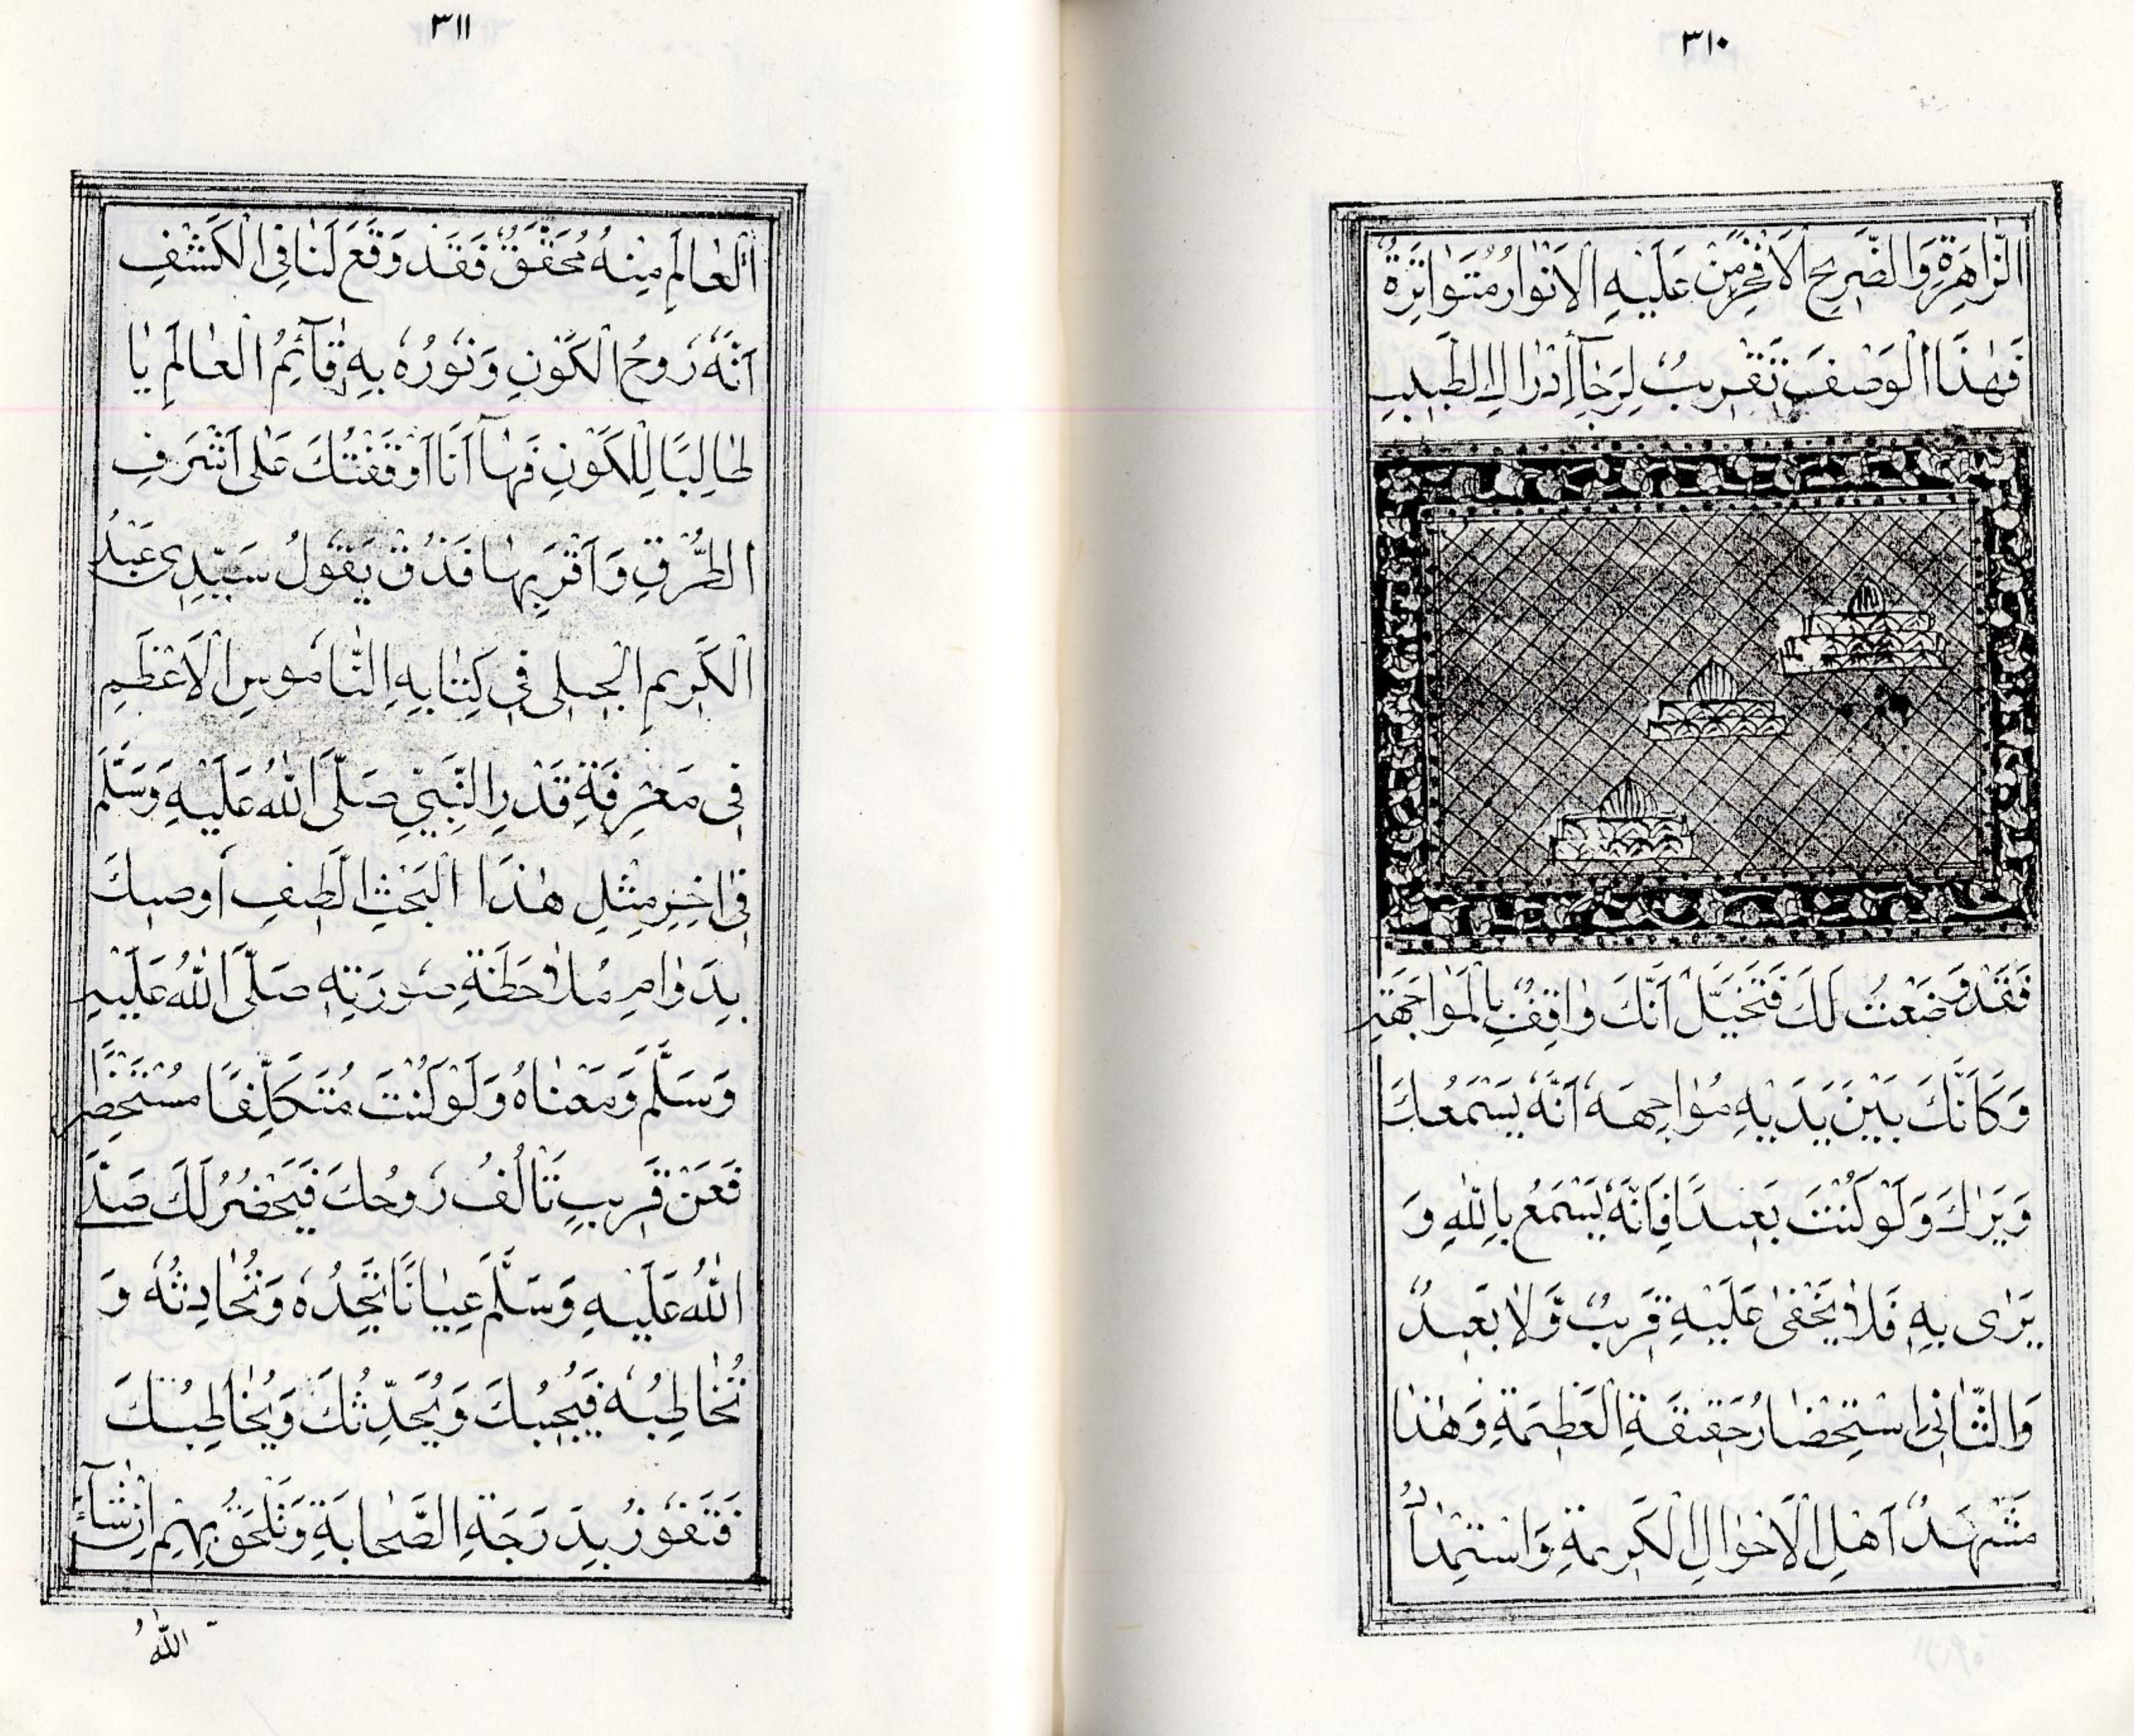 ٣١٠
الزَّاهِرَةِ وَالضَّرِيحِ الْاَفْخَرِ مَنْ عَلَيْهِ الْاَنْوَارُ مُتَوَاتِرَةٌ
فَهٰذَا الْوَصْفُ تَقْرِيبٌ لِرَجَآءِ اِدْرَاكِ الطَّبِيبِ
فَقَدْ وَضَعْتُ لَكَ فَتَخَيَّلْ اَنَّكَ وَاقِفٌ بِالْمَوَاجَهَةِ
وَكَاَنَّكَ بَيْنَ يَدَيْهِ مُوَاجِهَهُ اَنَّهُ يَسْمَعُكَ
وَيَرٰكَ وَلَوْ كُنْتَ بَعِيدًا فَاِنَّهُ يَسْمَعُ بِاللّٰهِ وَ
يَرٰى بِهِ فَلَا يَخْفٰى عَلَيْهِ قَرِيبٌ وَّلَا بَعِيدٌ
وَالثَّانِى اسْتِحْضَارُ حَقِيقَةِ الْعَظِيمَةِ وَهٰذَا
مَشْهَدُ اَهْلِ الْاَحْوَالِ الْكَرِيمَةِ وَاسْتِمْدَادُ
٣١١
الْعَالَمِ مِنْهُ مُحَقَّقٌ فَقَدْ وَقَعَ لَنَا فِى الْكَشْفِ
اَنَّهُ رَوحُ الْكَوْنِ وَنُورُهُ بِهِ قَآئِمُ الْعَالَمِ يَا
طَالِبًا لِلْكَوْنِ فَهَآ اَنَا اَوْقَفْتُكَ عَلٰى اَشْرَفِ
الطُّرُقِ وَاَقْرَبِهَا فَذُقْ يَقُولُ سَيِّدِى عَبْدُ
الْكَرِيمِ الْجِيلِى فِى كِتَابِهِ النَّامُوسِ الْاَعْظَمِ
فِى مَعْرِفَةِ قَدْرِ النَّبِيِّ صَلَّى اللّٰهُ عَلَيْهِ وَسَلَّمَ
فِى اٰخِرِ مِثْلِ هٰذَا الْبَحْثِ الَّطِيفِ اُوصِيكَ
بِدَوَامِ مُلَاحَظَةِ صُورَتِهِ صَلَّى اللّٰهُ عَلَيْهِ
وَسَلَّمَ وَمَعْنَاهُ وَلَوْ كُنْتَ مُتَكَلِّفًا مُسْتَحْضِرًا
فَعَنْ قَرِيبٍ تَأْلُفُ رُوحُكَ فَيَحْضُرُ لَكَ صَلَّى
اللّٰهُ عَلَيْهِ وَسَلَّمَ عِيَانًا تَجِدُهُ وَتُحَادِثُهُ وَ
تُخَاطِبُهُ فَيُجِيبُكَ وَيُحَدِّثُكَ وَيُخَاطِبُكَ
فَتَفُوزُ بِدَرَجَةِ الصَّحَابَةِ وَتَلْحَقُ بِهِمْ اِنْ شَآءَ
اللّٰهُ